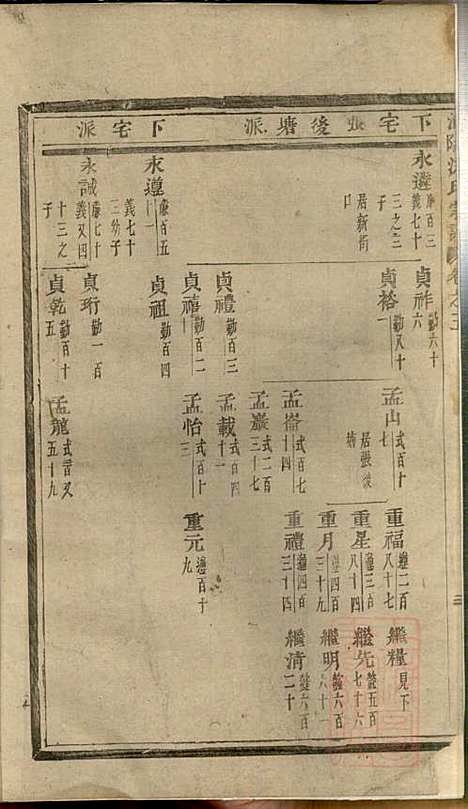 下宅張後塘派
下宅派
永選 廉百三
義七十
三之三
子
居新街
口
永遵 廉百五
十一
義七十
二幼子
永誠 廉七十
義又四
十三之
子
貞祚 勤六十
六
貞裕 勤又十
一
貞禮 勤百三
貞禧 勤百二
十
貞祖 勤百四
貞珩 勤一百
貞乾 勤百十
五
孟山 式百十
七
居張後
塘
孟崙 式百七
十四
孟巖 式二百
三十七
孟載 式百四
十一
孟怡 式百十
三
孟龍 式言又
五十九
重福 遜二百
八十七
重星 遜三百
八十四
重月 遜四百
三十九
重禮 遜四百
三十四
重元 遜百十
九
繼糧 見下
繼先 乾五百
七十六
繼明 乾六百
六十一
繼清 乾六百
二十